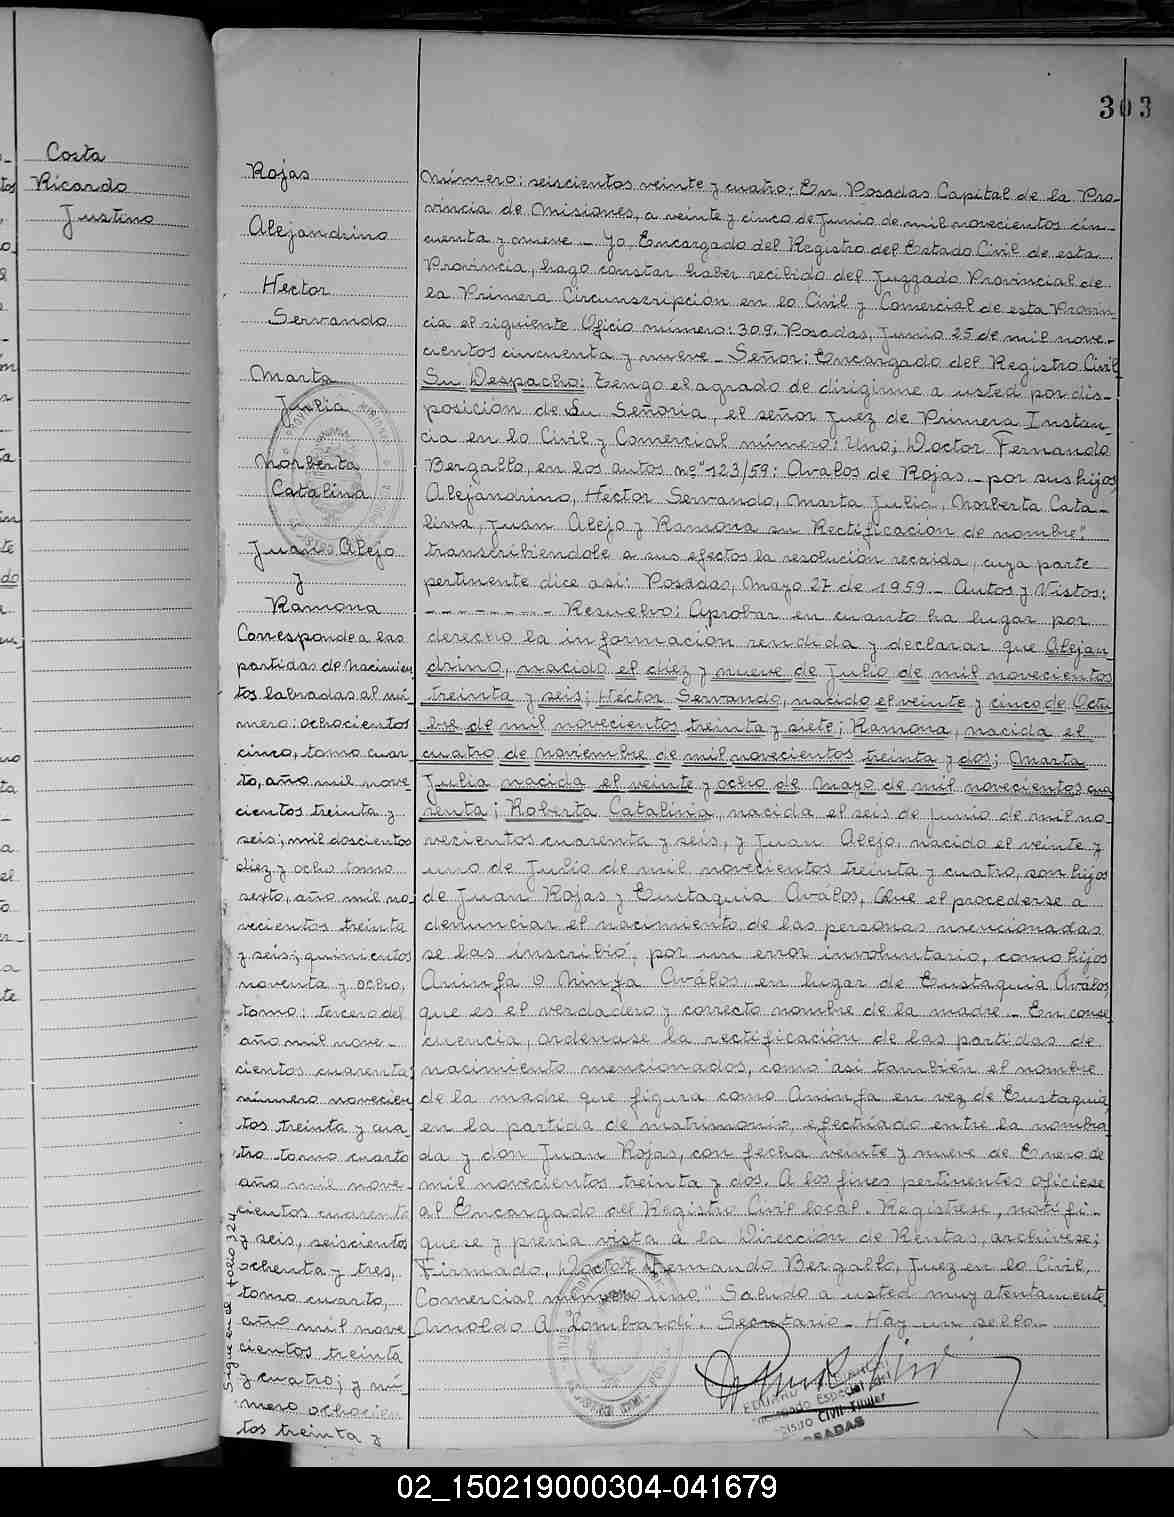 Costa
Ricardo
Justino
303
Rojas
Alejandrino
Hector
Servando
Marta
Julia
Norberta
Catalina
Juan Alejo
y
Ramona
Corresponde a las
partidas de Nacimien
tos labradas al nú-
mero: ochocientos
cinco, tomo cuar-
to, año mil nove-
cientos treinta y
seis; mil doscientos
diez y ocho tomo
sexto, año mil no-
vecientos treinta
y seis; quinientos
noventa y ocho,
tomo: tercero del
año mil nove-
cientos cuarenta;
número novecien
tos treinta y cua-
tro tomo cuarto
año mil nove-
cientos cuarenta
y seis, seiscientos
ochenta y tres,
tomo cuarto,
año mil nove
cientos treinta
y cuatro; y nú-
mero ochocien
tos treinta y
Sigue en el folio 324
Número: seiscientos veinte y cuatro: En Posadas Capital de la Pro-
vincia de Misiones, a veinte y cinco de Junio de mil novecientos cin-
cuenta y nueve - Yo, Encargado del Registro del Estado Civil de esta
Provincia, hago constar haber recibido del Juzgado Provincial de
la Primera Circunscripción en lo Civil y Comercial de esta Provin-
cia el siguiente Oficio número: 309. Posadas, Junio 25 de mil nove-
cientos cincuenta y nueve - Señor: Encargado del Registro Civil
Su Despacho: Tengo el agrado de dirigirme a usted por dis-
posición de Su Señoría, el señor Juez de Primera Instan-
cia en lo Civil y Comercial número: Uno; Doctor Fernando
Bergallo, en los autos nº "123/59: Avalos de Rojas - por sus hijos,
Alejandrino, Hector Servando, Marta Julia, Norberta Cata-
lina, Juan Alejo y Ramona su Rectificación de nombre",
transcribiéndole a sus efectos la resolución recaida, cuya parte
pertinente dice así: Posadas, Mayo 27 de 1959 - Autos y Vistos:
- - - - - - - - - Resuelvo: Aprobar en cuanto ha lugar por
derecho la información rendida y declarar que Alejan-
drino, nacido el diez y nueve de Julio de mil novecientos
treinta y seis; Héctor Servando, nacido el veinte y cinco de Octu-
bre de mil novecientos treinta y siete; Ramona, nacida el
cuatro de noviembre de mil novecientos treinta y dos; Marta
Julia nacida el veinte y ocho de Mayo de mil novecientos cua
renta; Roberta Catalina, nacida el seis de Junio de mil no-
vecientos cuarenta y seis, y Juan Alejo, nacido el veinte y
uno de Julio de mil novecientos treinta y cuatro, son hijos
de Juan Rojas y Eustaquia Aválos, Que el procederse a
denunciar el nacimiento de las personas mencionadas
se las inscribió, por un error involuntario, como hijos
Aninfa o Ninfa Aválos, en lugar de Eustaquia Aválos
que es el verdadero y correcto nombre de la madre - En conse
cuencia, ordenase la rectificación de las partidas de
nacimiento mencionados, como asi también el nombre
de la madre que figura como Aninfa en vez de Eustaquia,
en la partida de matrimonio, efectuado entre la nombra
da y don Juan Rojas, con fecha veinte y nueve de Enero de
mil novecientos treinta y dos. A los fines pertinentes ofíciese
al Encargado del Registro Civil local. Regístrese, notifí-
quese y previa vista a la Dirección de Rentas, archívese;
Firmado, Doctor Fernando Bergallo, Juez en lo Civil,
Comercial número uno." Saludo a usted muy atentamente
Arnoldo A. Lombardi. Secretario - Hay un sello -
Civil Titular
POSADAS
02_150219000304-041679